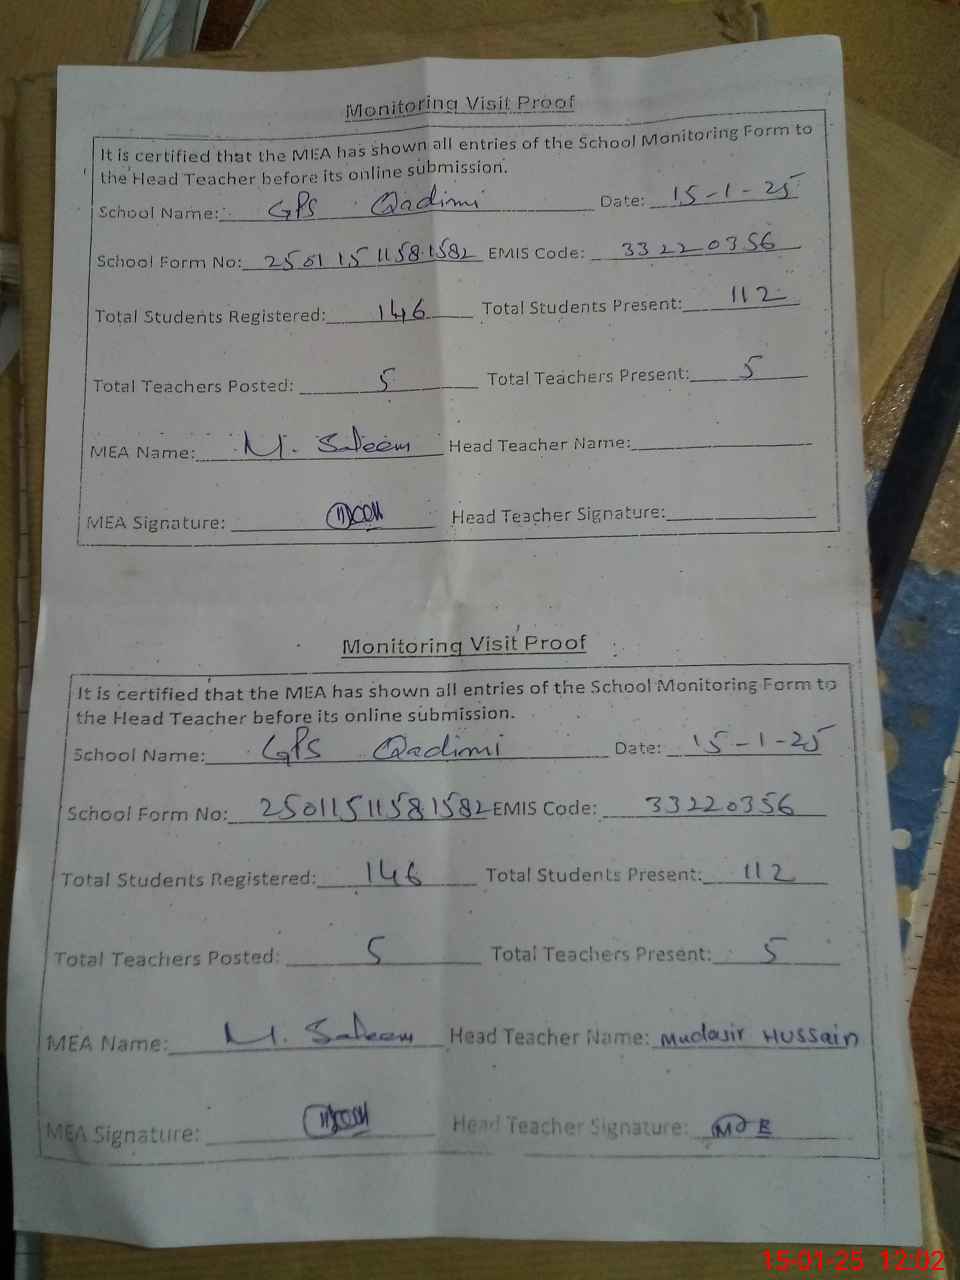 Monitoring Visit Proof
It is certified that the MEA has shown all entries of the School Monitoring Form to
the Head Teacher before its online submission.
School Name: GPS Qadimi Date: 15-1-25
School Form No: 25011511581582 EMIS Code: 33220356
Total Students Registered: 146 Total Students Present: 112
Total Teachers Posted: 5 Total Teachers Present: 5
MEA Name: M. Saleem Head Teacher Name:
MEA Signature: Head Teacher Signature:
Monitoring Visit Proof
It is certified that the MEA has shown all entries of the School Monitoring Form to
the Head Teacher before its online submission.
School Name: GPS Qadimi Date: 15-1-25
School Form No: 25011511581582 EMIS Code: 33220356
Total Students Registered: 146 Total Students Present: 112
Total Teachers Posted: 5 Total Teachers Present: 5
MEA Name: M. Saleem Head Teacher Name: Mudasir Hussain
MEA Signature: Head Teacher Signature:
15-01-25 12:02